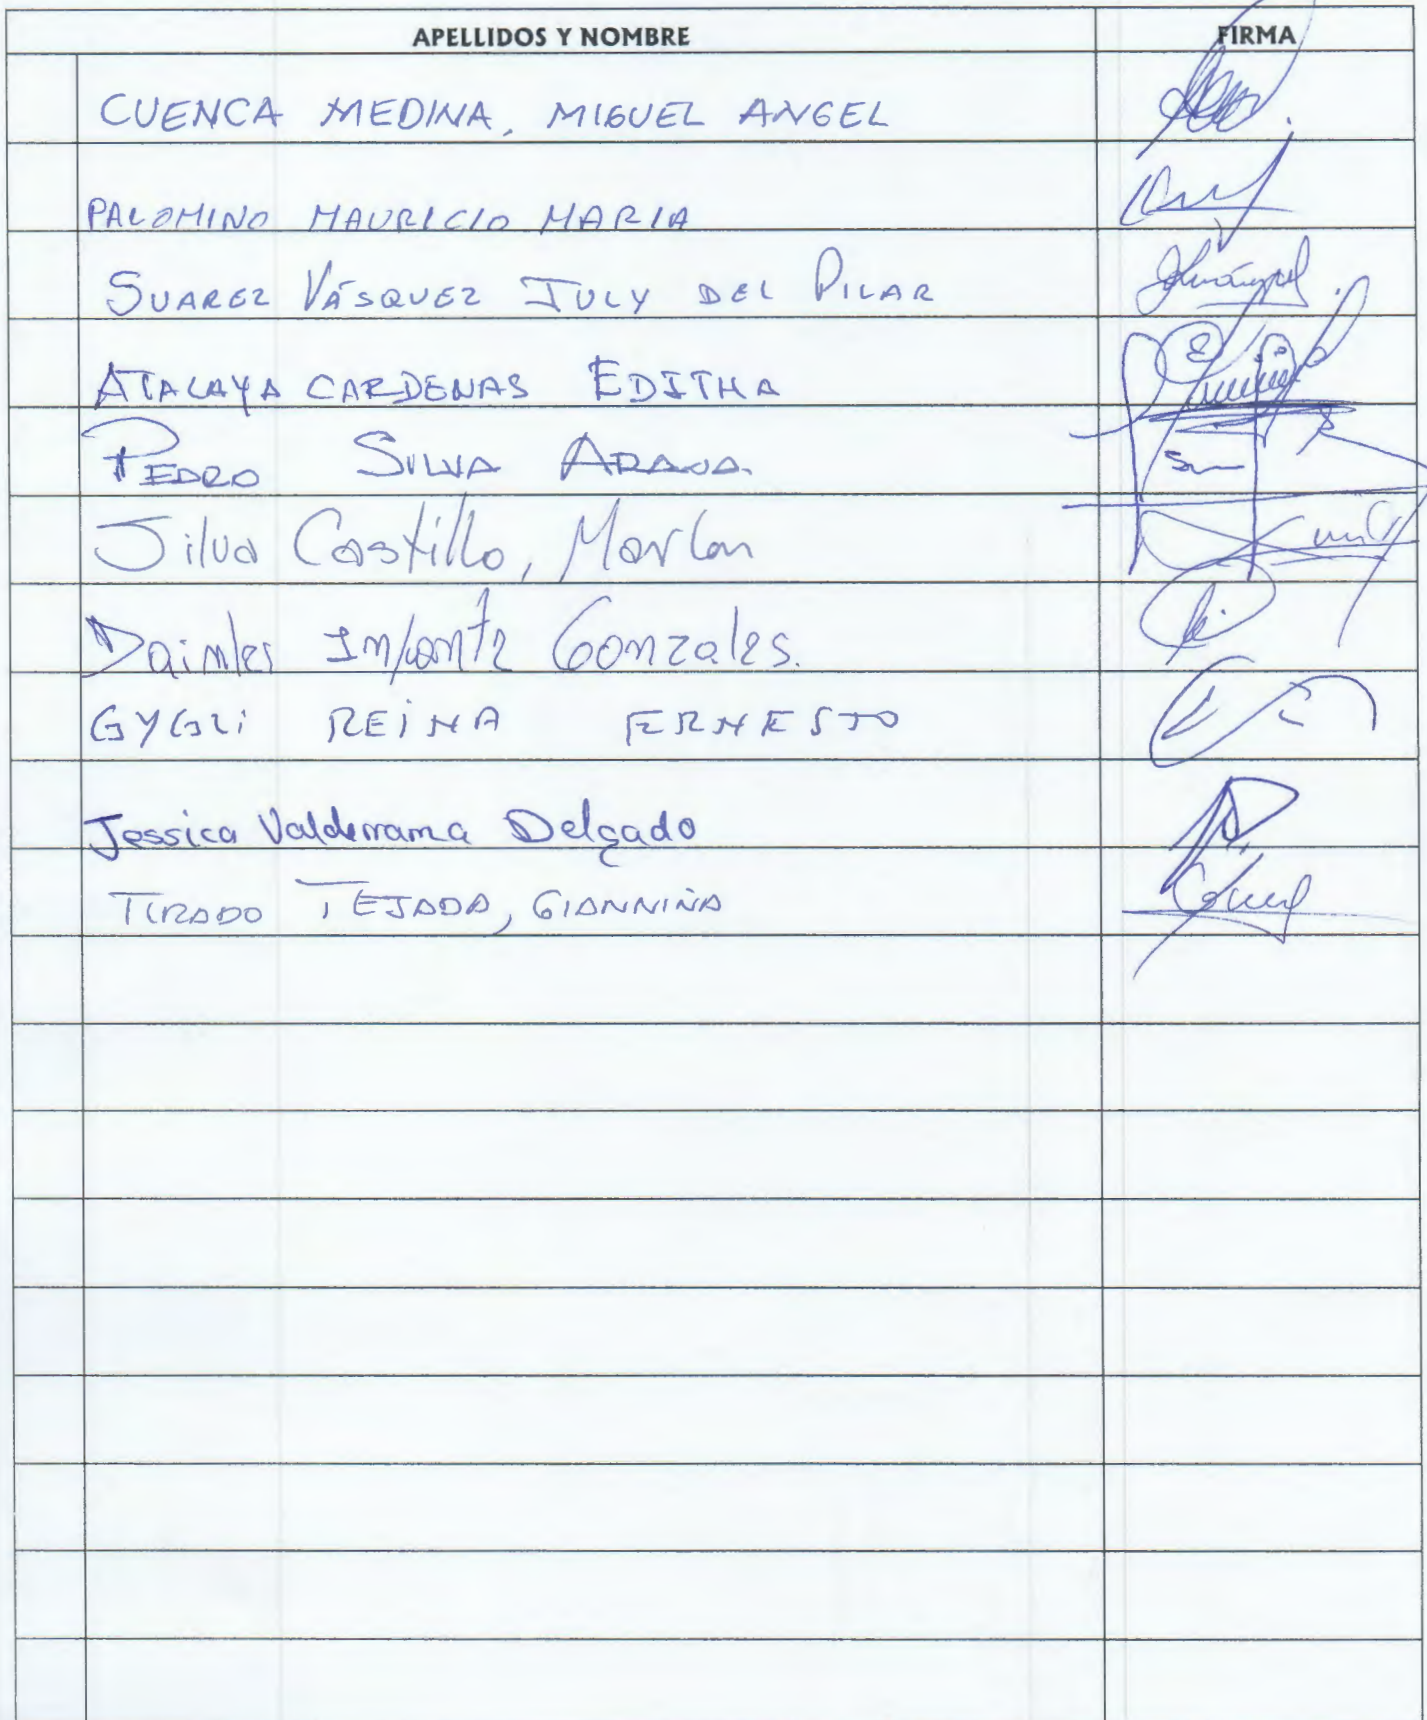 APELLIDOS Y NOMBRE FIRMA
CUENCA MEDINA, MIGUEL ANGEL
PALOMINO MAURICIO MARIA
SUAREZ VÁSQUEZ JULY DEL PILAR
ATALAYA CARDENAS EDITHA
PEDRO SILVA
Silva Castillo, Marlon
Infante Gonzales.
GYGLI REINA ERNESTO
Jessica Valderrama Delgado
TIRADO TEJADA, GIANNINA